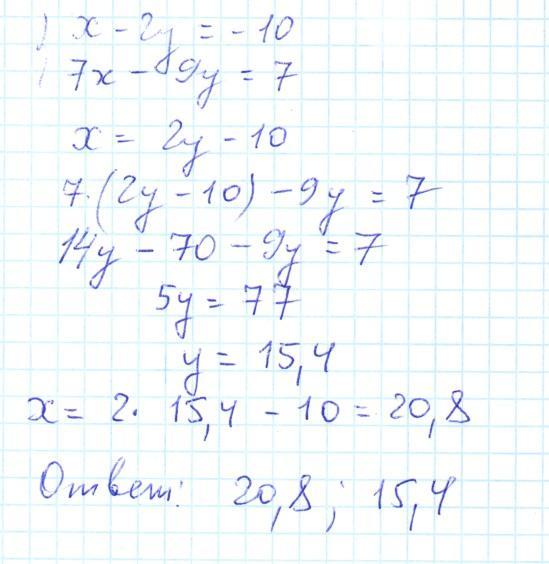 x - 2y = - 10
7x - 9y = 7
x = 2y - 10
7·(2y - 10) - 9y = 7
14y - 70 - 9y = 7
5y = 77
y = 15,4
x = 2· 15,4 - 10 = 20,8
Ответ: 20,8; 15,4